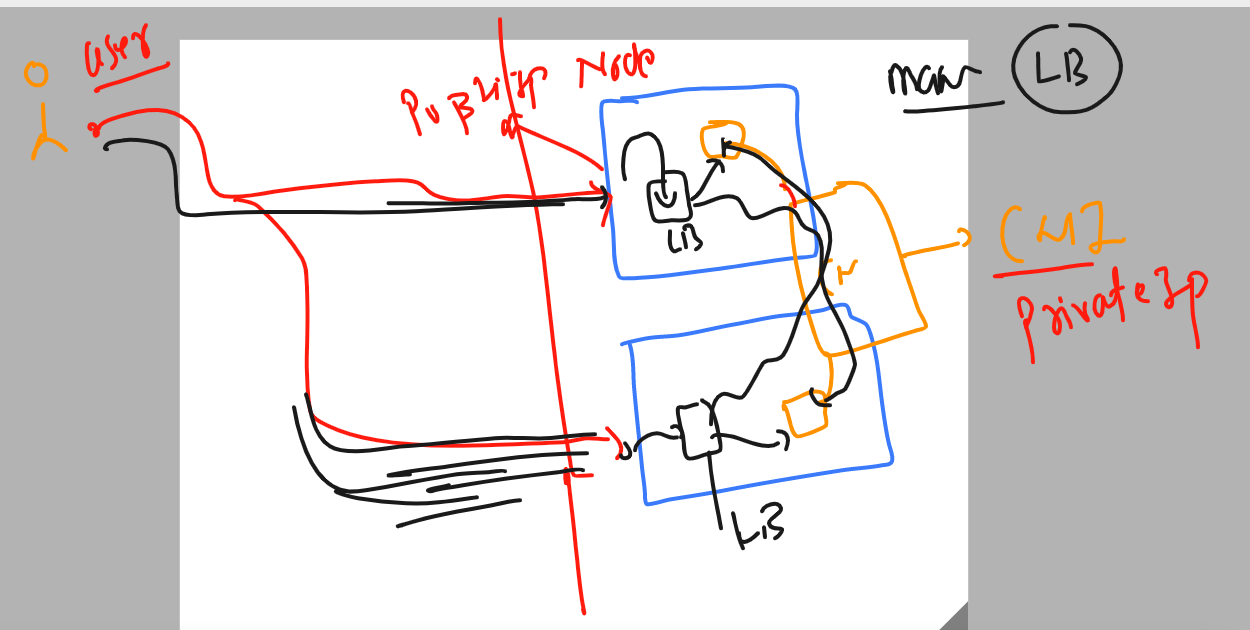 user
Public Ip Node
man LB
LB
Private Ip
LB